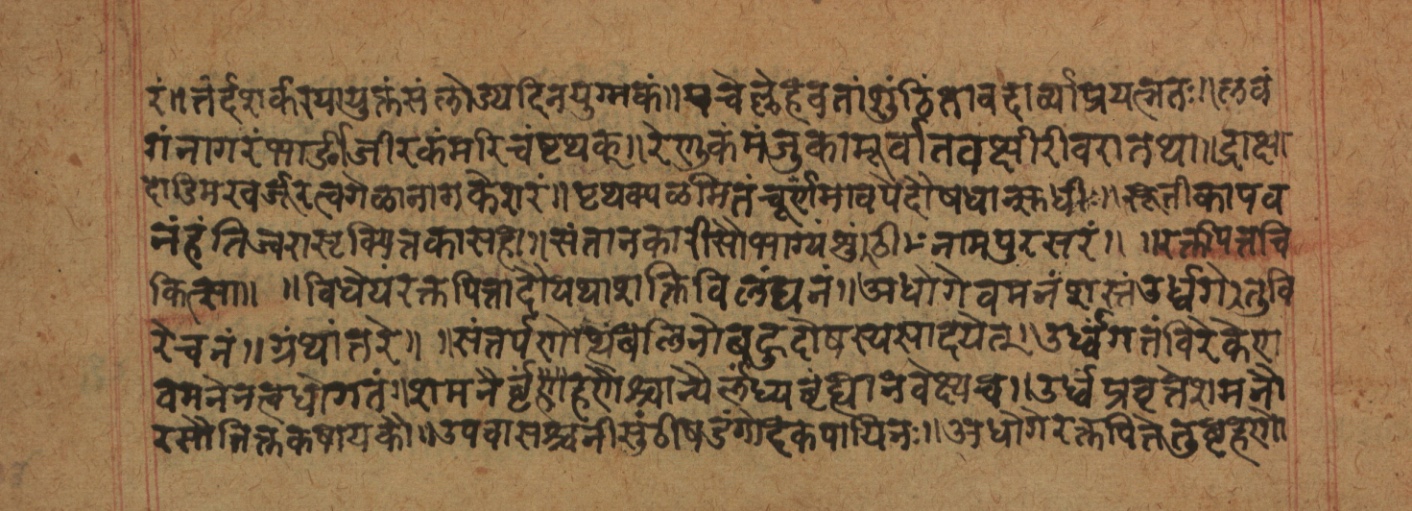 रं॥ तंर्द्दशर्करयायुक्तंसंलोड्यदिनयुग्मकं॥ पचेल्लेहेवृतांशुंठिंतावद्दार्व्याप्रयत्नतः॥ लवं
गंनागरंभार्ङीजीरकंमरिचंपृथक्॥ रेणुकंमंजुकामूर्वातवक्षीरीवरातथा॥ द्राक्षा
दाडिमखर्जूरत्वगेळानागकेशरं॥ पृथक्पळमितंचूर्णमावपेदौषधानुरुधीः॥ सूतीकापव
नंहंतिज्वरासृक्पित्तकासहा॥ संतानकारीसौभाग्यंशुंठीनामपुरसरं॥ ॥रक्तपित्तचि
कित्सा॥ ॥विधेयंरक्तपित्तादौयथाशक्तिविलंघनं॥ अधोगेवमनंशस्तंउर्ध्वगेतुवि
रेचनं॥ ग्रंथांतरे॥ ॥संतर्पणोत्थंबलिनोबहुदोषस्यसादयेत्॥ उर्ध्वगतंविरेकेण
वमनेनत्वधोगतं॥ शमनैर्बृंहणैश्चान्यैर्लंघ्यबृंह्यानवेक्ष्यच॥ उर्ध्वंप्रवृत्तेशमनौ
रसौतिक्तकषायकौ॥ उपवासश्चनीसुंठीषडंगोदकपायिनः॥ अधोगेरक्तपित्तेतुबृंहणो